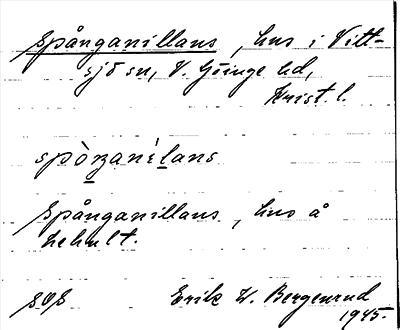 Spånganillans, hus i Vitt-
sjö sn, V. Göinge hd,
Krist. l.
Spånganillans, hus å
hehult.
Erik W. Bergenrud
1945.